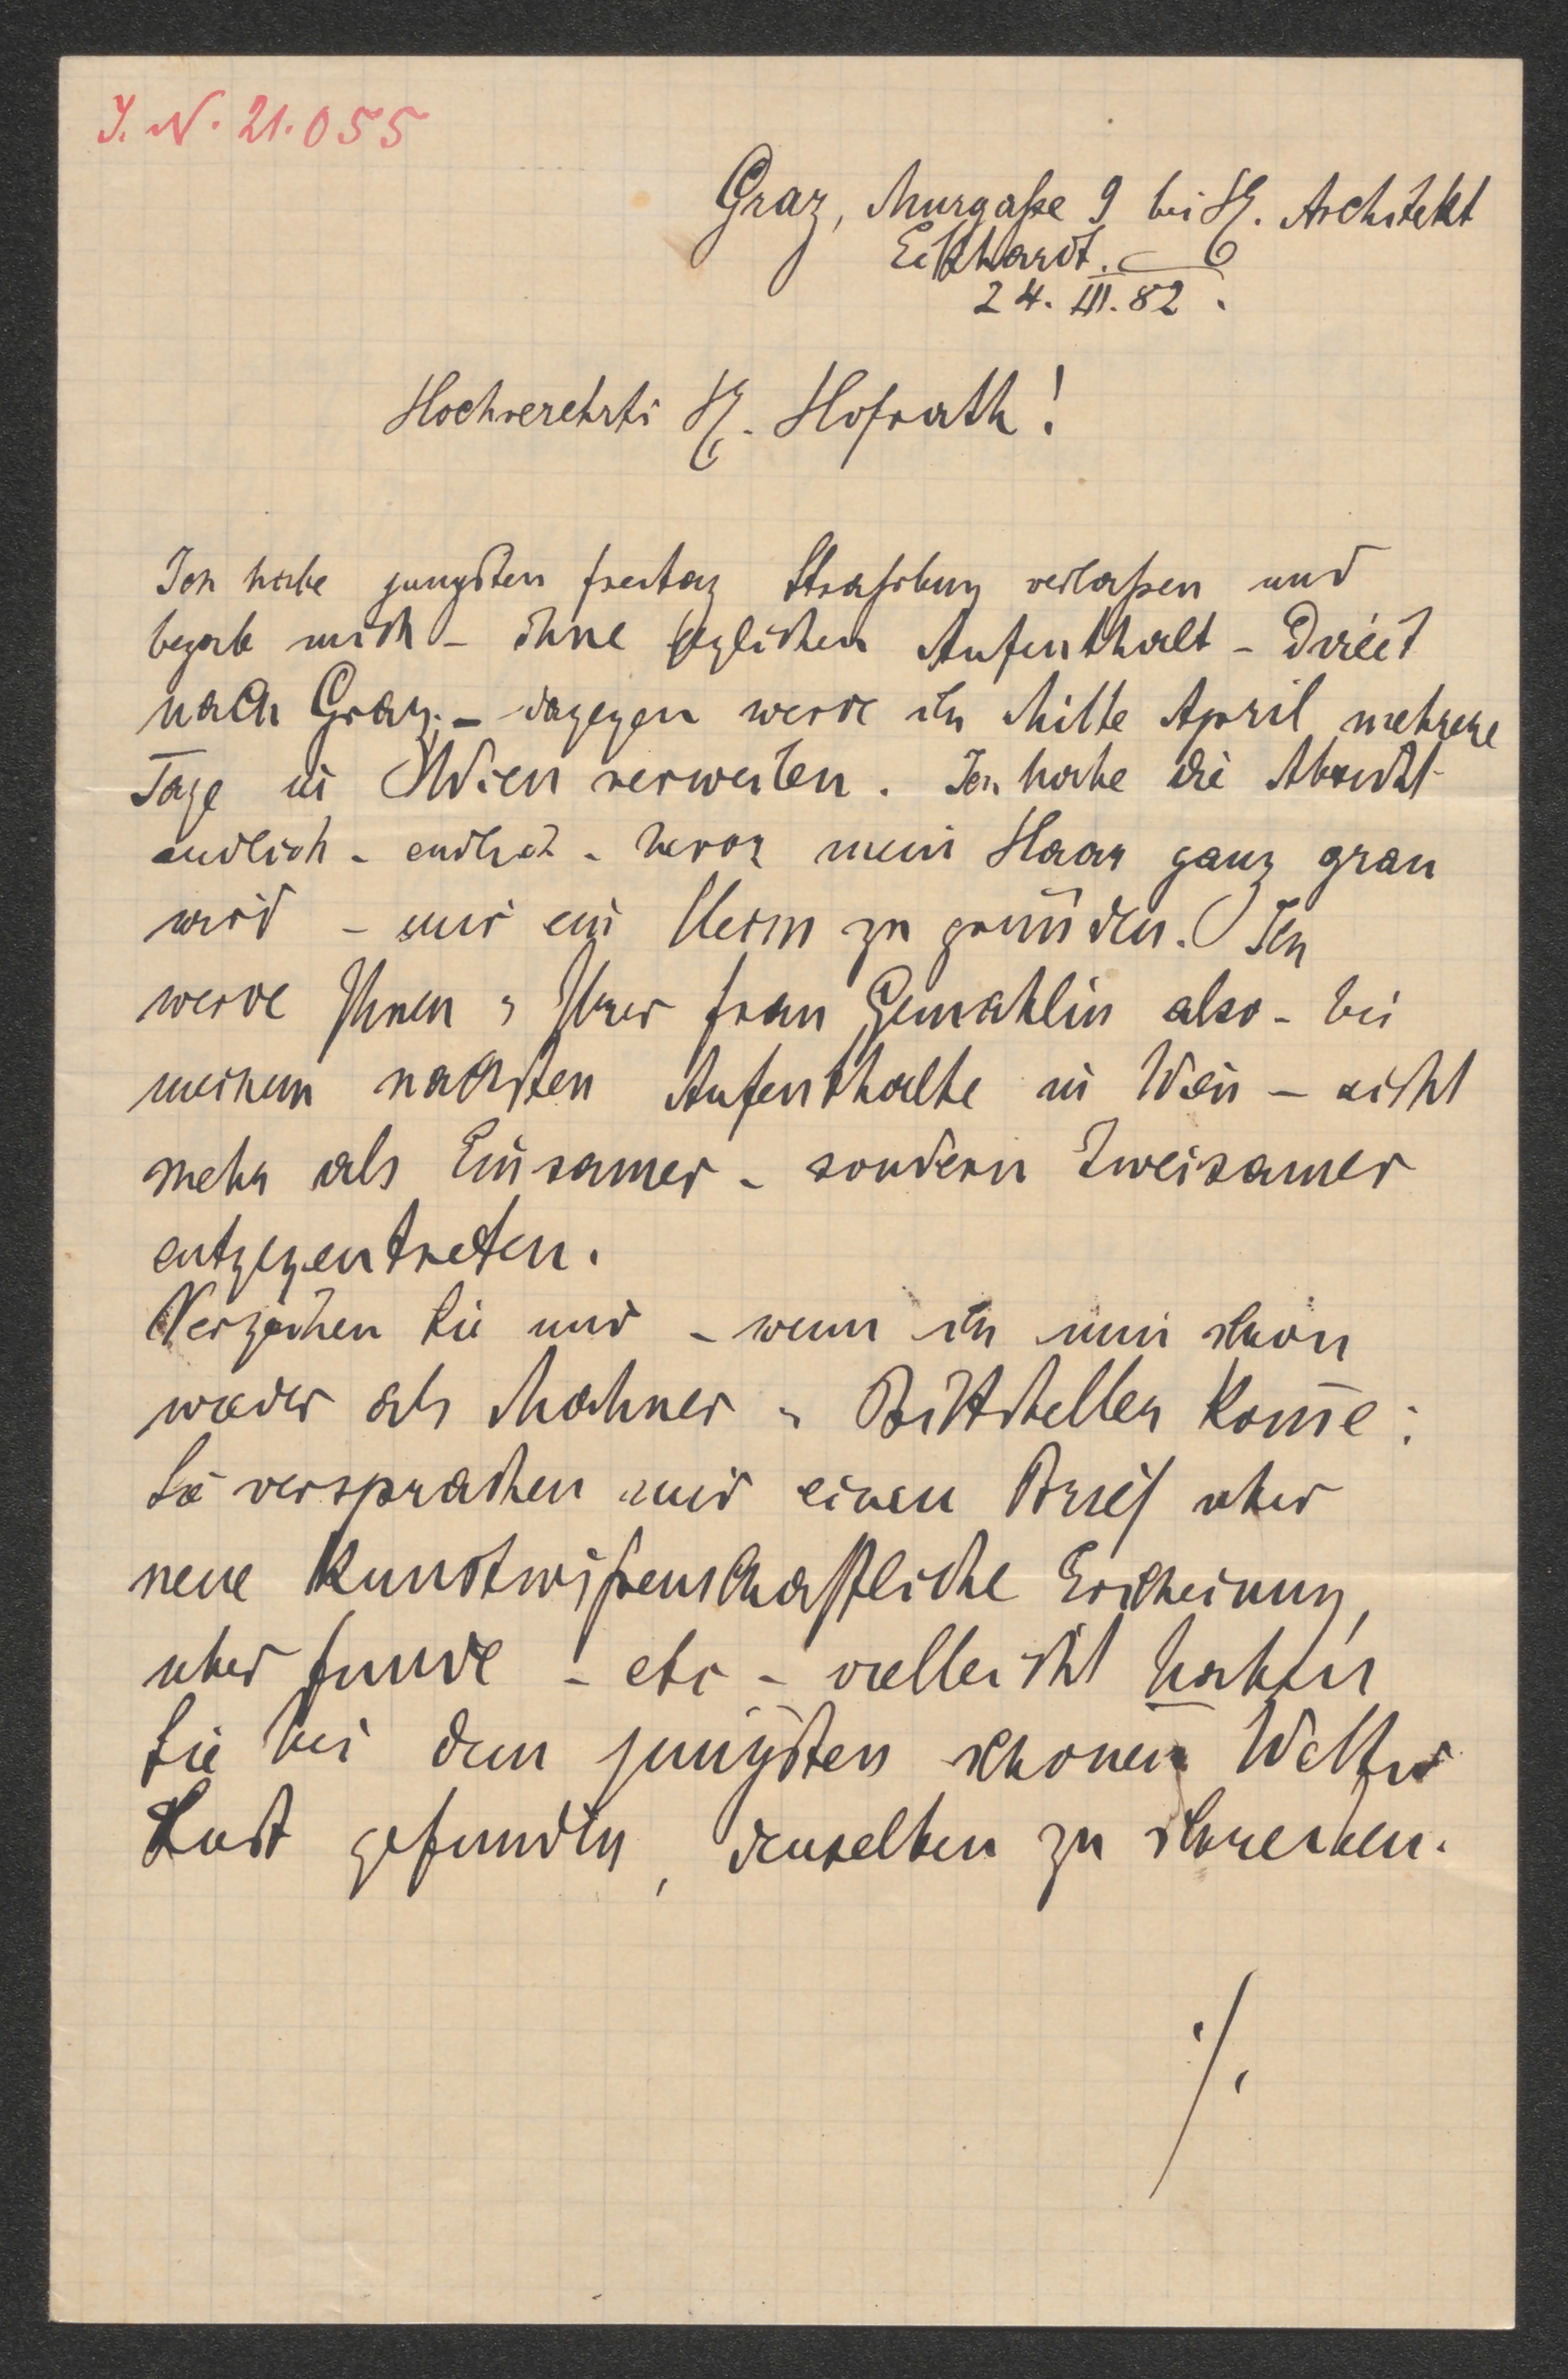 J. N. 21.055
Graz, Murgaße 9 bei H. Architekt
Eckhardt.
24. III. 82.
Hochverehrter H. Hofrath!
Ich habe jüngsten Freitag Straßburg verlaßen und
begab mich – ohne jeglichen Aufenthalt – direct
nach Graz. – dagegen werde ich Mitte April mehrere
Tage in Wien verweilen. Ich habe die Absicht
endlich – endlich – bevor mein Haar ganz grau
wird – mir ein Heim zu gründen. Ich
werde Ihnen u Ihrer Frau Gemahlin also – bei
meinem nächsten Aufenthalte in Wien – nicht
mehr als Einsamer – sondern Zweisamer
entgegentreten.
Verzeihen Sie mir – wenn ich nun schon
wieder als Mahner u Bittsteller kom̅e:
Sie versprachen mir einen Brief über
neue kunstwißenschaftliche Erscheinung,
über Funde – etc – vielleicht haben
Sie bei dem jüngsten schönen Wetter
Lust gefunden, denselben zu schreiben.
./.